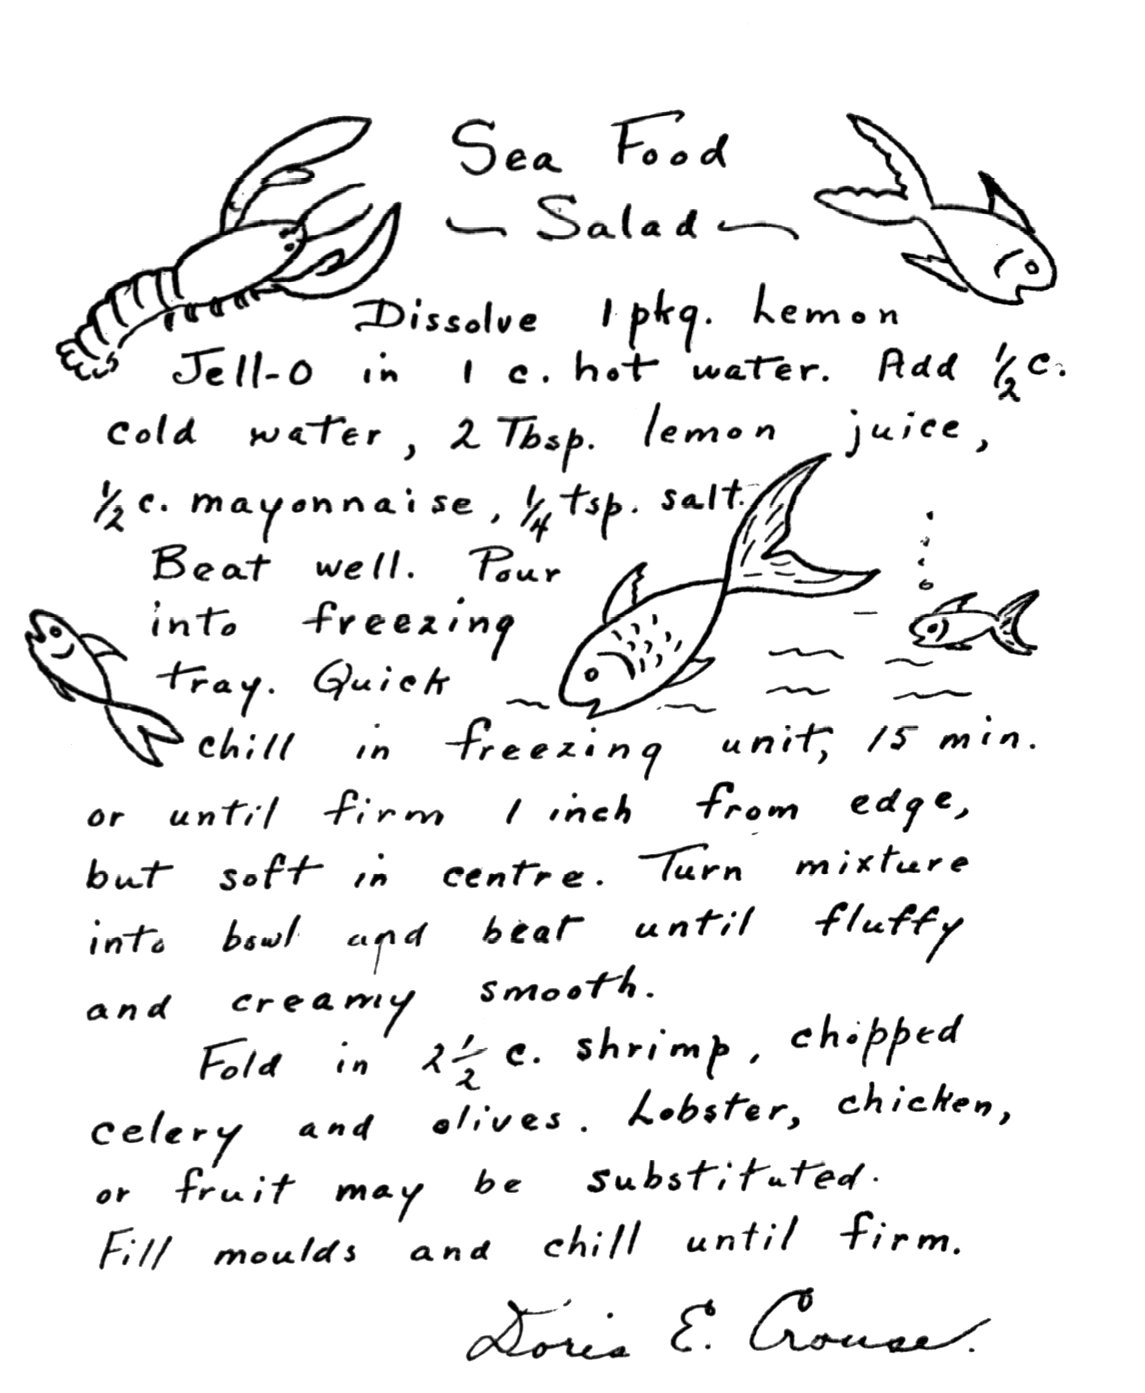 Sea Food
~ Salad ~
Dissolve 1 pkg. Lemon
Jell-O in 1 c. hot water. Add 1/2 c.
cold water, 2 Tbsp. lemon juice,
1/2 c. mayonnaise, 1/4 tsp. salt.
Beat well. Pour
into freezing
tray. Quick
chill in freezing unit, 15 min.
or until firm 1 inch from edge,
but soft in centre. Turn mixture
into bowl and beat until fluffy
and creamy smooth.
Fold in 2 1/2 c. shrimp, chopped
celery and olives. Lobster, chicken,
or fruit may be substituted.
Fill moulds and chill until firm.
Doris E. Crouse.